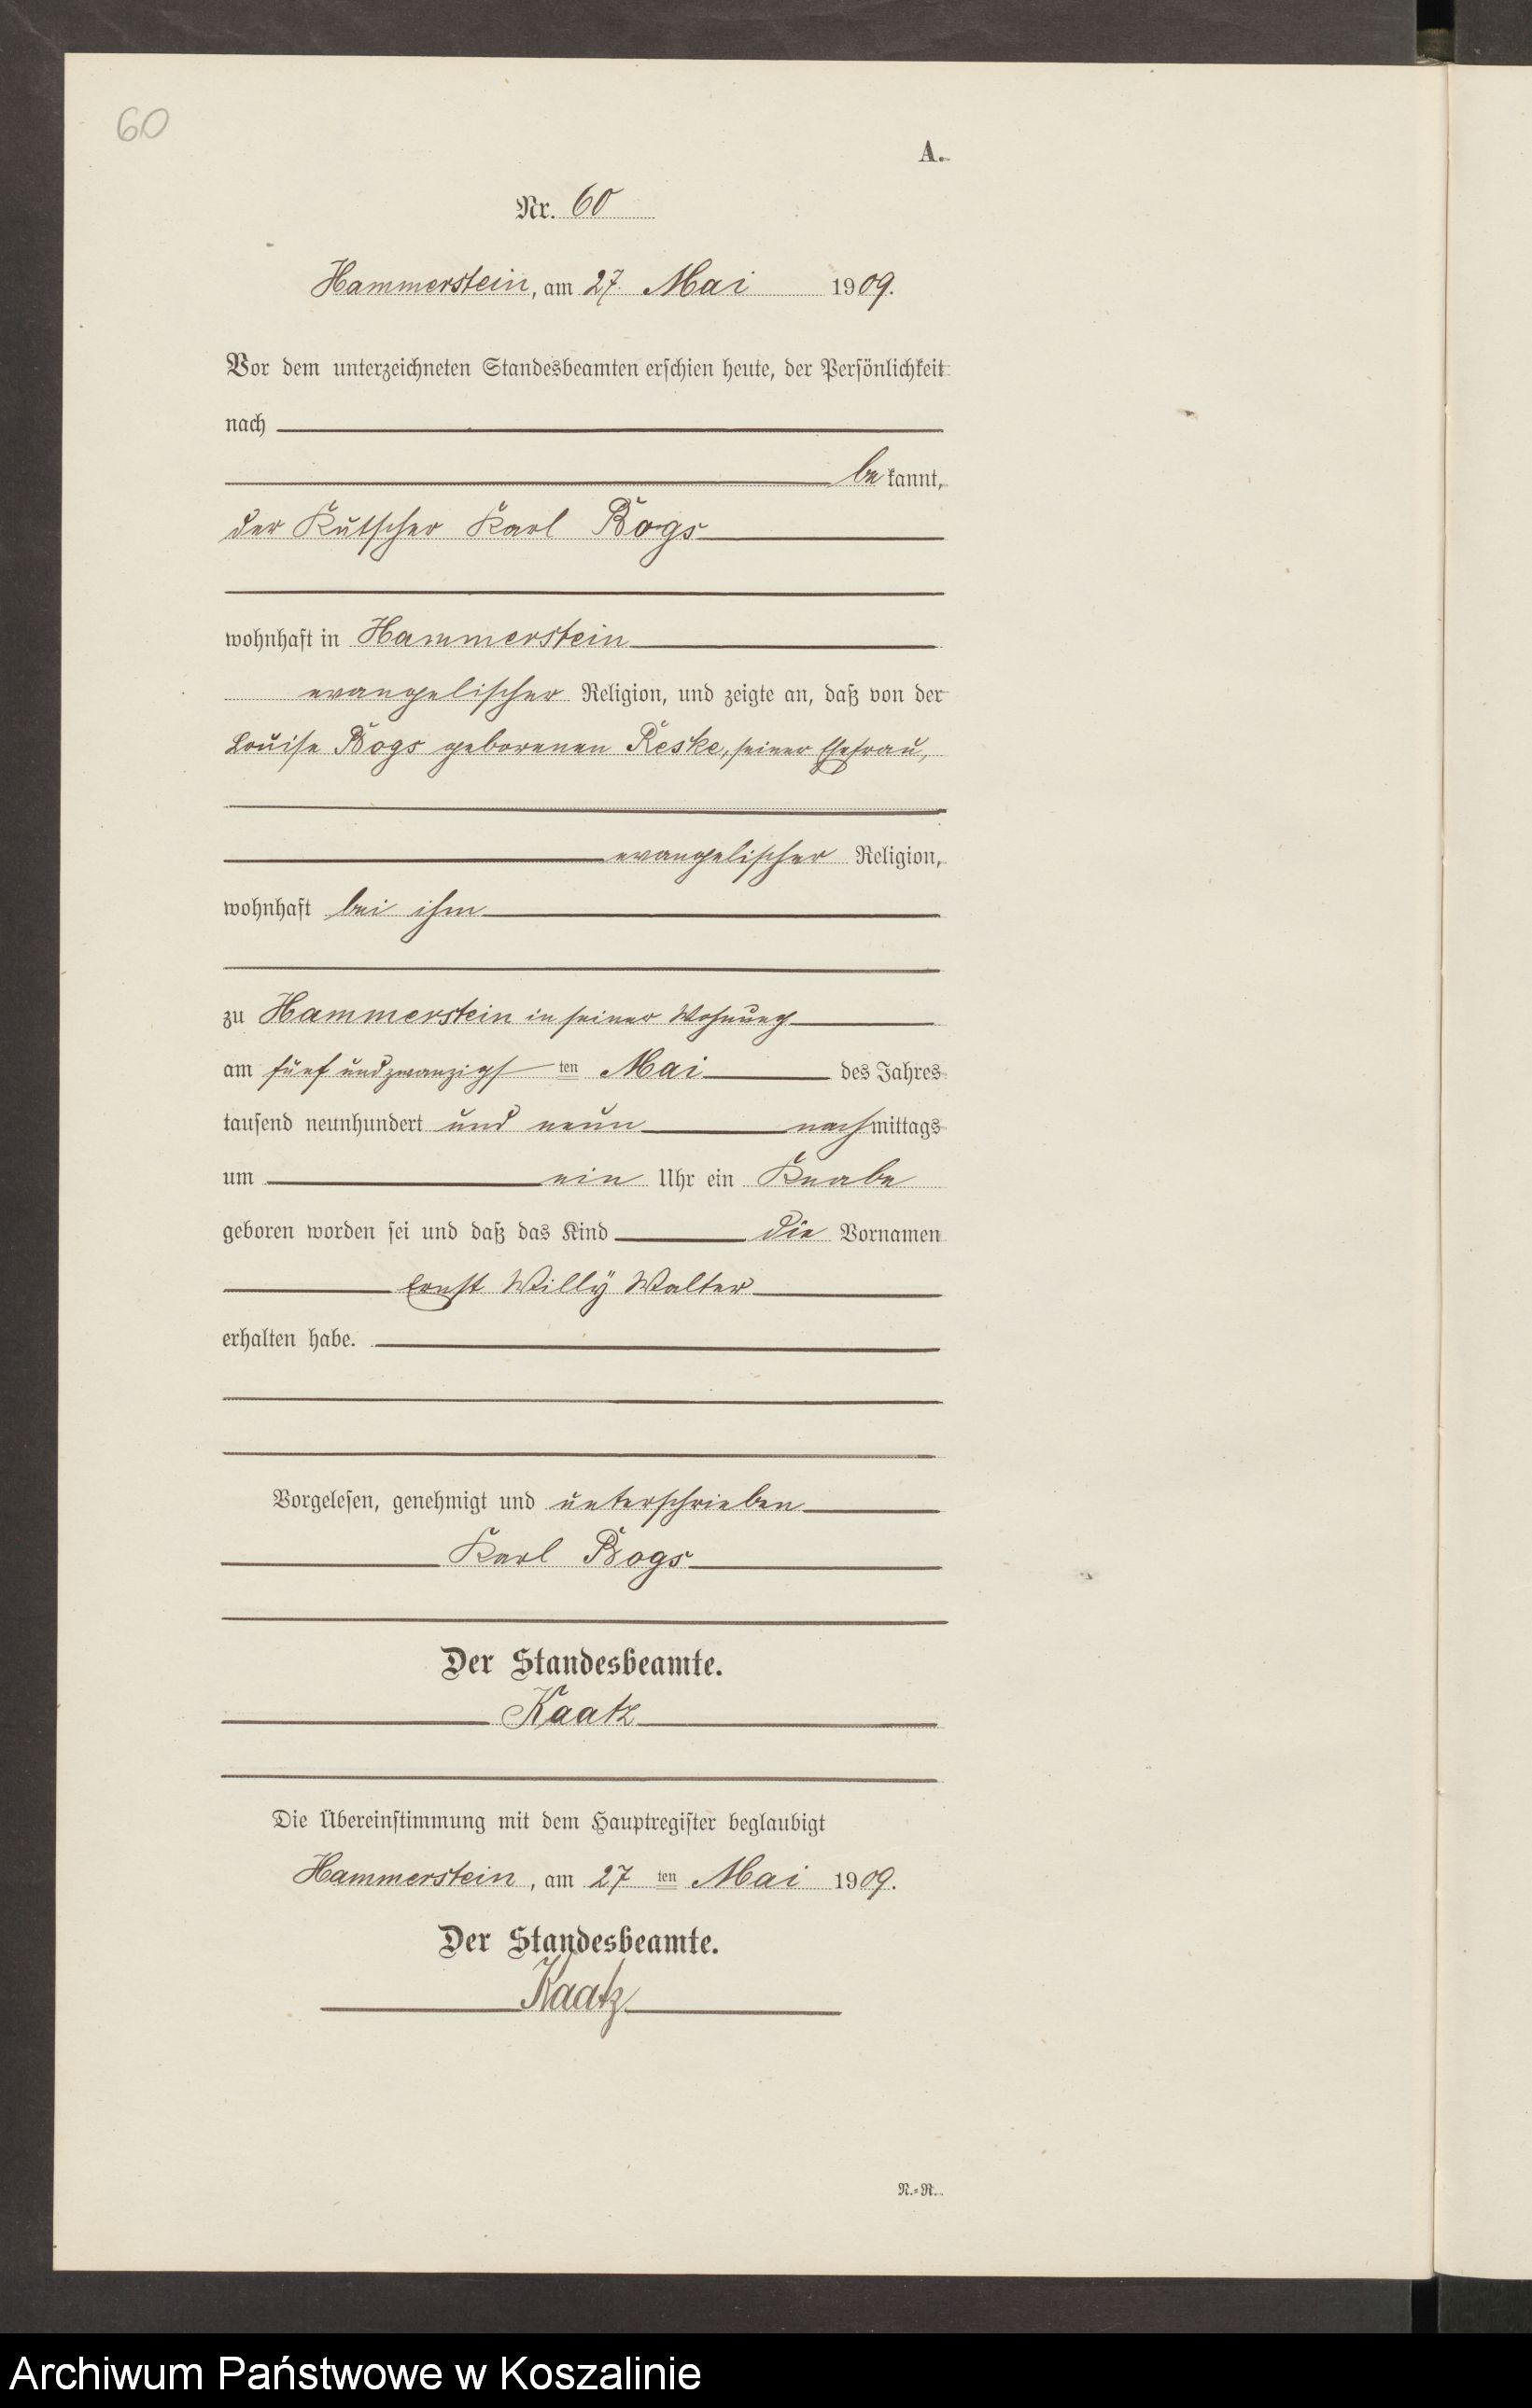 60
A.
Nr. 60
Hammerstein, am 27. Mai 1909.
Vor dem unterzeichneten Standesbeamten erschien heute, der Persönlichkeit
nach
bekannt,
der Kutscher Karl Bogs
wohnhaft in Hammerstein
evangelischer Religion, und zeigte an, daß von der
Louise Bogs geborenen Reske, seiner Ehefrau,
evangelischer Religion,
wohnhaft bei ihm
zu Hammerstein in seiner Wohnung
am fünf und zwanzigsten Mai des Jahres
tausend neunhundert und neun nachmittags
um ein Uhr ein Knabe
geboren worden sei und daß das Kind die Vornamen
Ernst Willy Walter
erhalten habe.
Vorgelesen, genehmigt und unterschrieben
Karl Bogs
Der Standesbeamte.
Kaatz
Die Übereinstimmung mit dem Hauptregister beglaubigt
Hammerstein, am 27ten Mai 1909.
Der Standesbeamte.
Kaatz
N.-R.
Archiwum Państwowe w Koszalinie